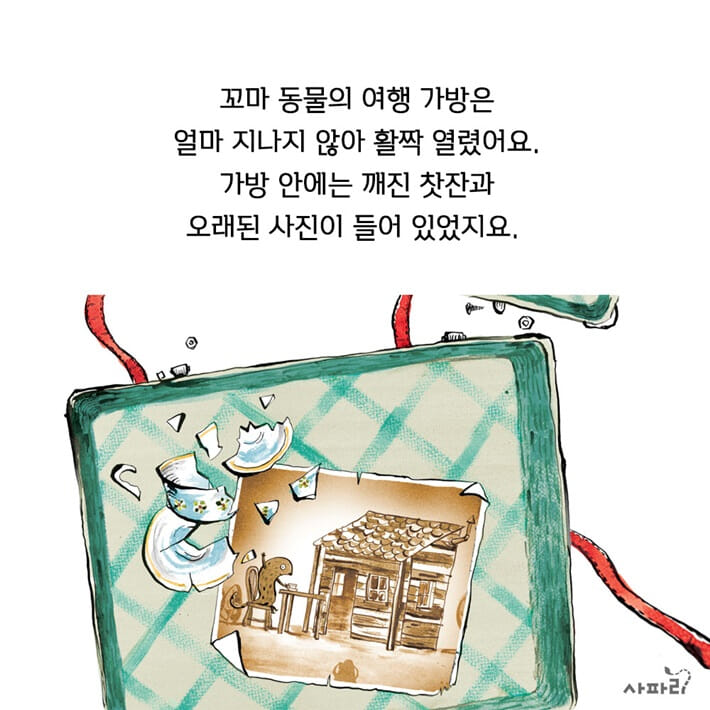 꼬마 동물의 여행 가방은
얼마 지나지 않아 활짝 열렸어요.
가방 안에는 깨진 찻잔과
오래된 사진이 들어 있었지요.
사파리